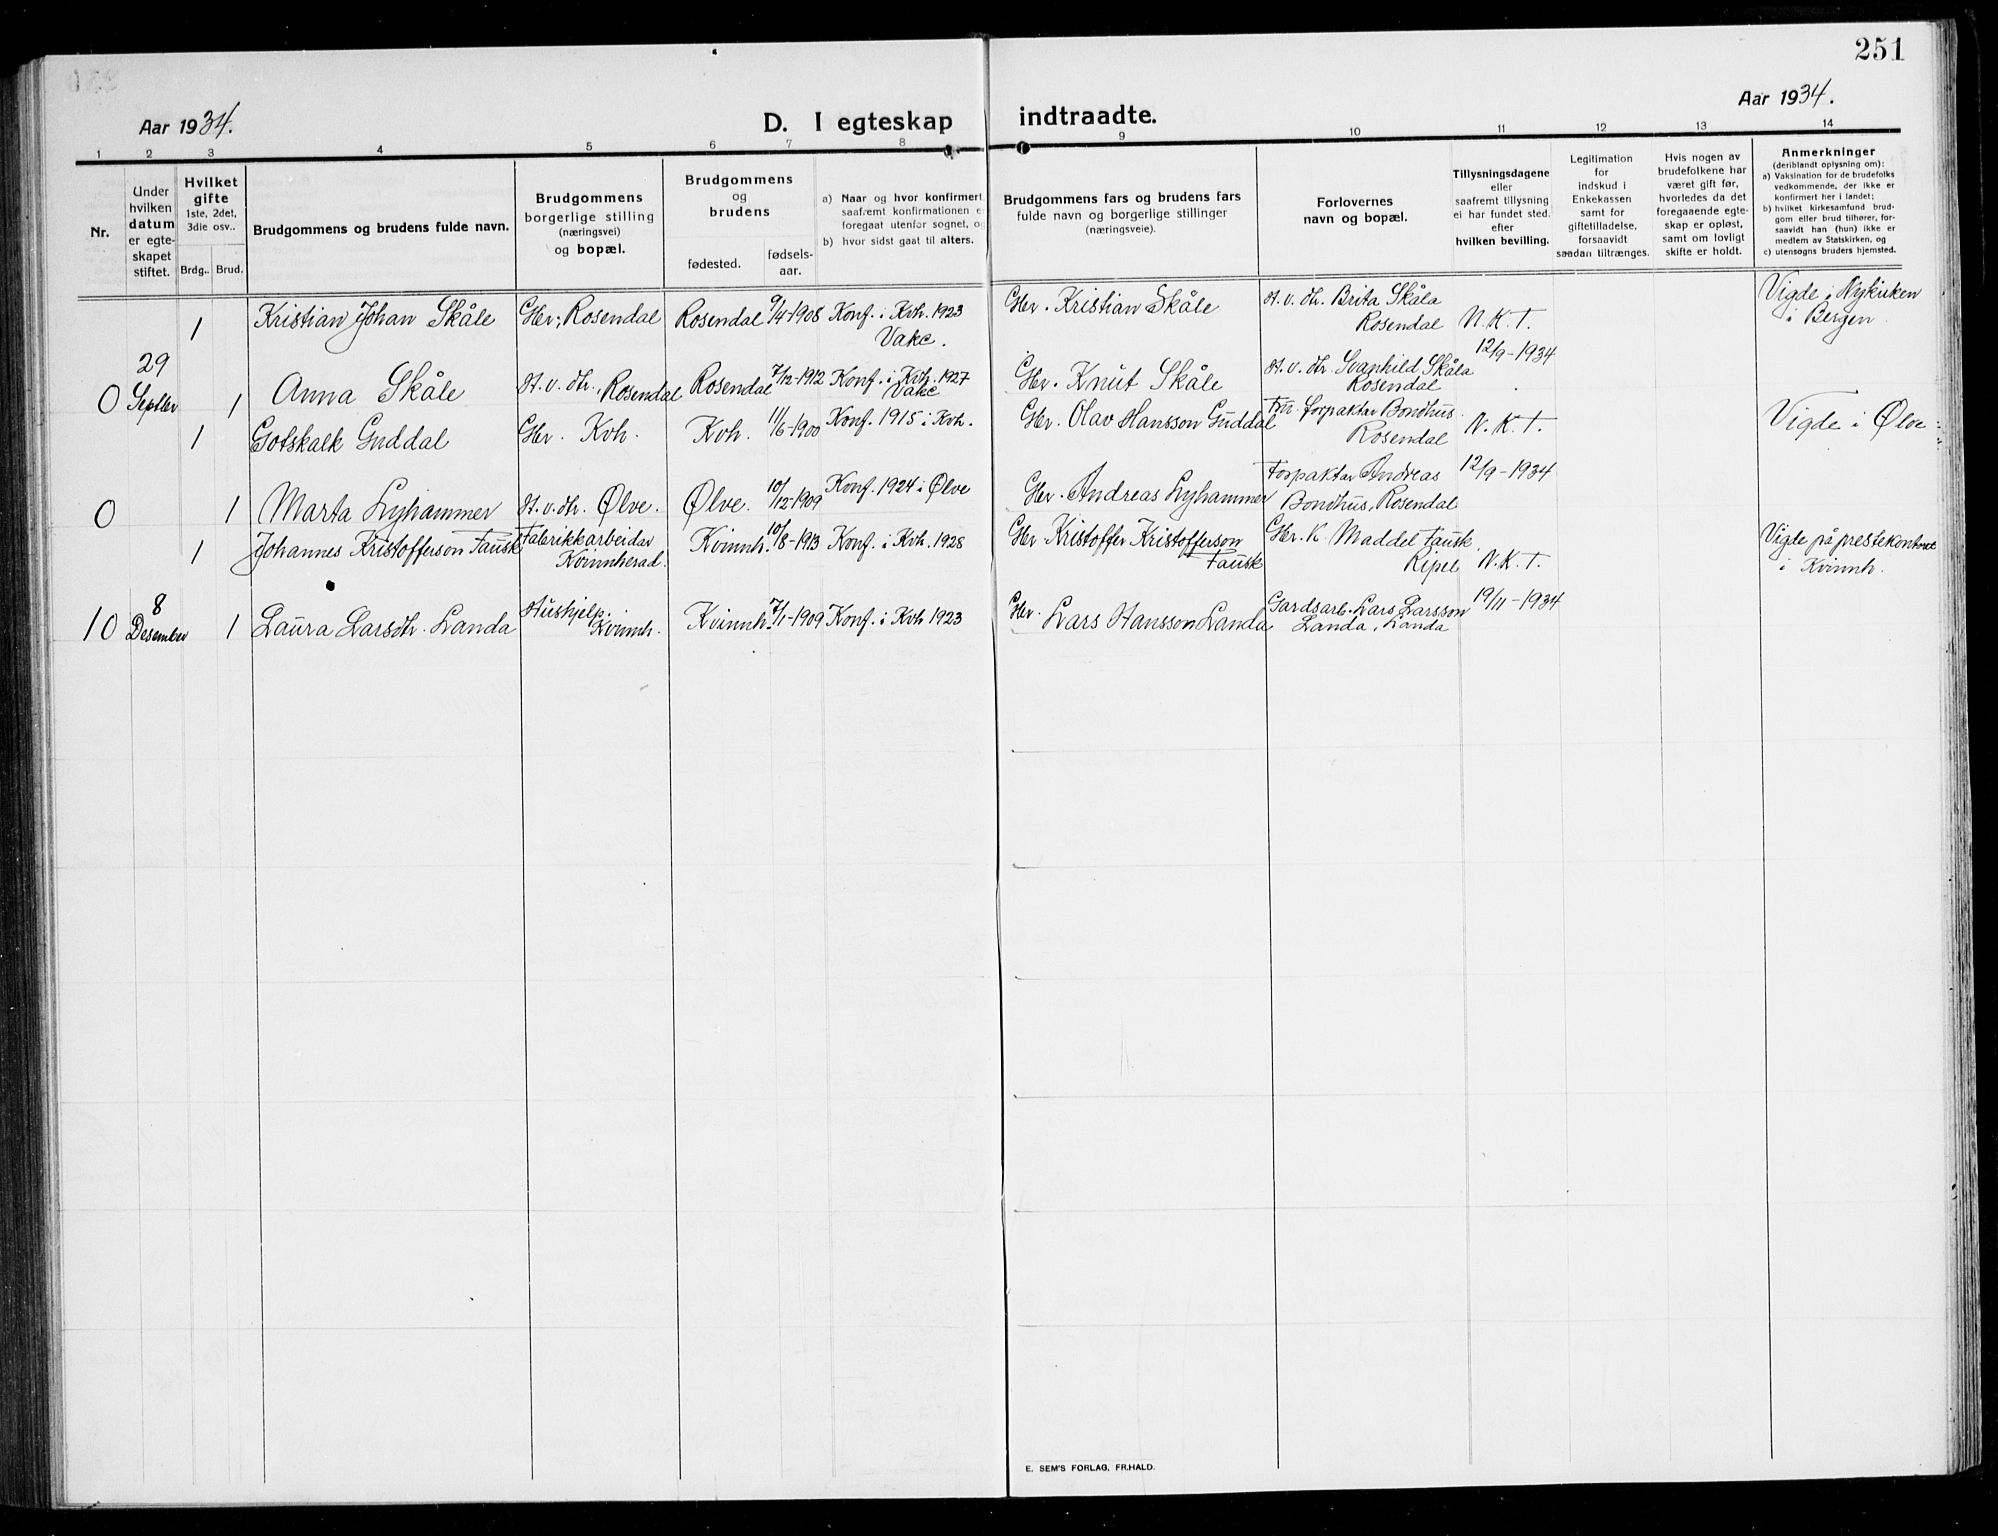 251
Aar 1934.
Aar 1934.
D. I egteskap indtraadte.
1 2 3 4 5 6 7 8 9 10 11 12 13 14
Nr.
Under hvilken datum er egteskapet stiftet.
Hvilket gifte
1ste, 2det, 3die osv..
Brdg.. Brud.
Brudgommens og brudens fulde navn.
Brudgommens borgerlige stilling (næringsvei) og bopæl.
Brudgommens og brudens
fødested.
fødselsaar.
a) Naar og hvor konfirmert,
saafremt konfirmationen e
foregaat utenfor sognet, og
b) hvor sidst gaat til alters.
Brudgommens fars og brudens fars
fulde navn og borgerlige stillinger
(næringsveie).
Forlovernes
navn og bopæl.
Tillysningsdagene
eller
saafremt tillysning
ei har fundet sted.
efter
hvilken bevilling.
Legitimation
for
indskud i
Enkekassen
samt for
giftetilladelse,
forsaavidt
saadan tiltrænges.
Hvis nogen av
brudefolkene har
været gift før,
hvorledes da det
foregaaende egteskap er opløst,
samt om lovligt
skifte er holdt.
Anmerkninger
(deriblandt oplysning om):
a) Vaksination for de brudefolks
vedkommende, der ikke er
konfirmert her i landet;
b) hvilket kirkesamfund brudgom eller brud tilhører, forsaavidt han (hun) ikke er
medlem av Statskirken, og
c) utensogns bruders hjemsted.
1 Kristian Johan Skåle Gbr., Rosendal Rosendal 9/4-1908 Konf. i Kvh. 1923 Vakc. Gbr. Kristian Skåle st. v. dtr. Brita Skåla Rosendal N. K. T. Vigde i Nykirken i Bergen.
0 29 Septbr 1 Anna Skåle st. v. dtr., Rosendal Rosendal 7/12-1912 Konf. i Kvh. 1927 Vakc Gbr. Knut Skåle st. v. dtr. Svanhild Skåla Rosendal 12/9-1934
1 Gotskalk Guddal Gbr. Kvh. Kvh. 11/6-1900 Konf. 1915 i Kvh. Gbr. Olav Hansson Guddal Fru forpaktar Bondhus Rosendal N. K. T. Vigde i Ølve
0 1 Marta Lyhammer st. v. dtr. Ølve. Ølve. 10/12-1909 Konf. 1924 i Ølve Gbr. Andreas Lyhammer Forpaktar Andreas Bondhus, Rosendal 12/9-1934
1 Johannes Kristofferson Fausk Fabrikkarbeidar Kvinnherad. Kvinnh. 10/8-1913 Konf. i Kvh. 1928 Gbr Kristoffer Kristofferson Fausk Gbr. K. Maddel Fausk, Ripel N. K. T. Vigde på prestekontoret i Kvinnh.
10 8 Desember 1 Laura Larsdtr. Landa Hushjelp. Kvinnh. Kvinnh. 7/1-1909 Konf. i Kvh 1923 Gbr. Lars Hansson Landa Gardsarb. Lars Larsson Landa, Landa 19/11-1934
E. SEM'S FORLAG, FR.HALD.